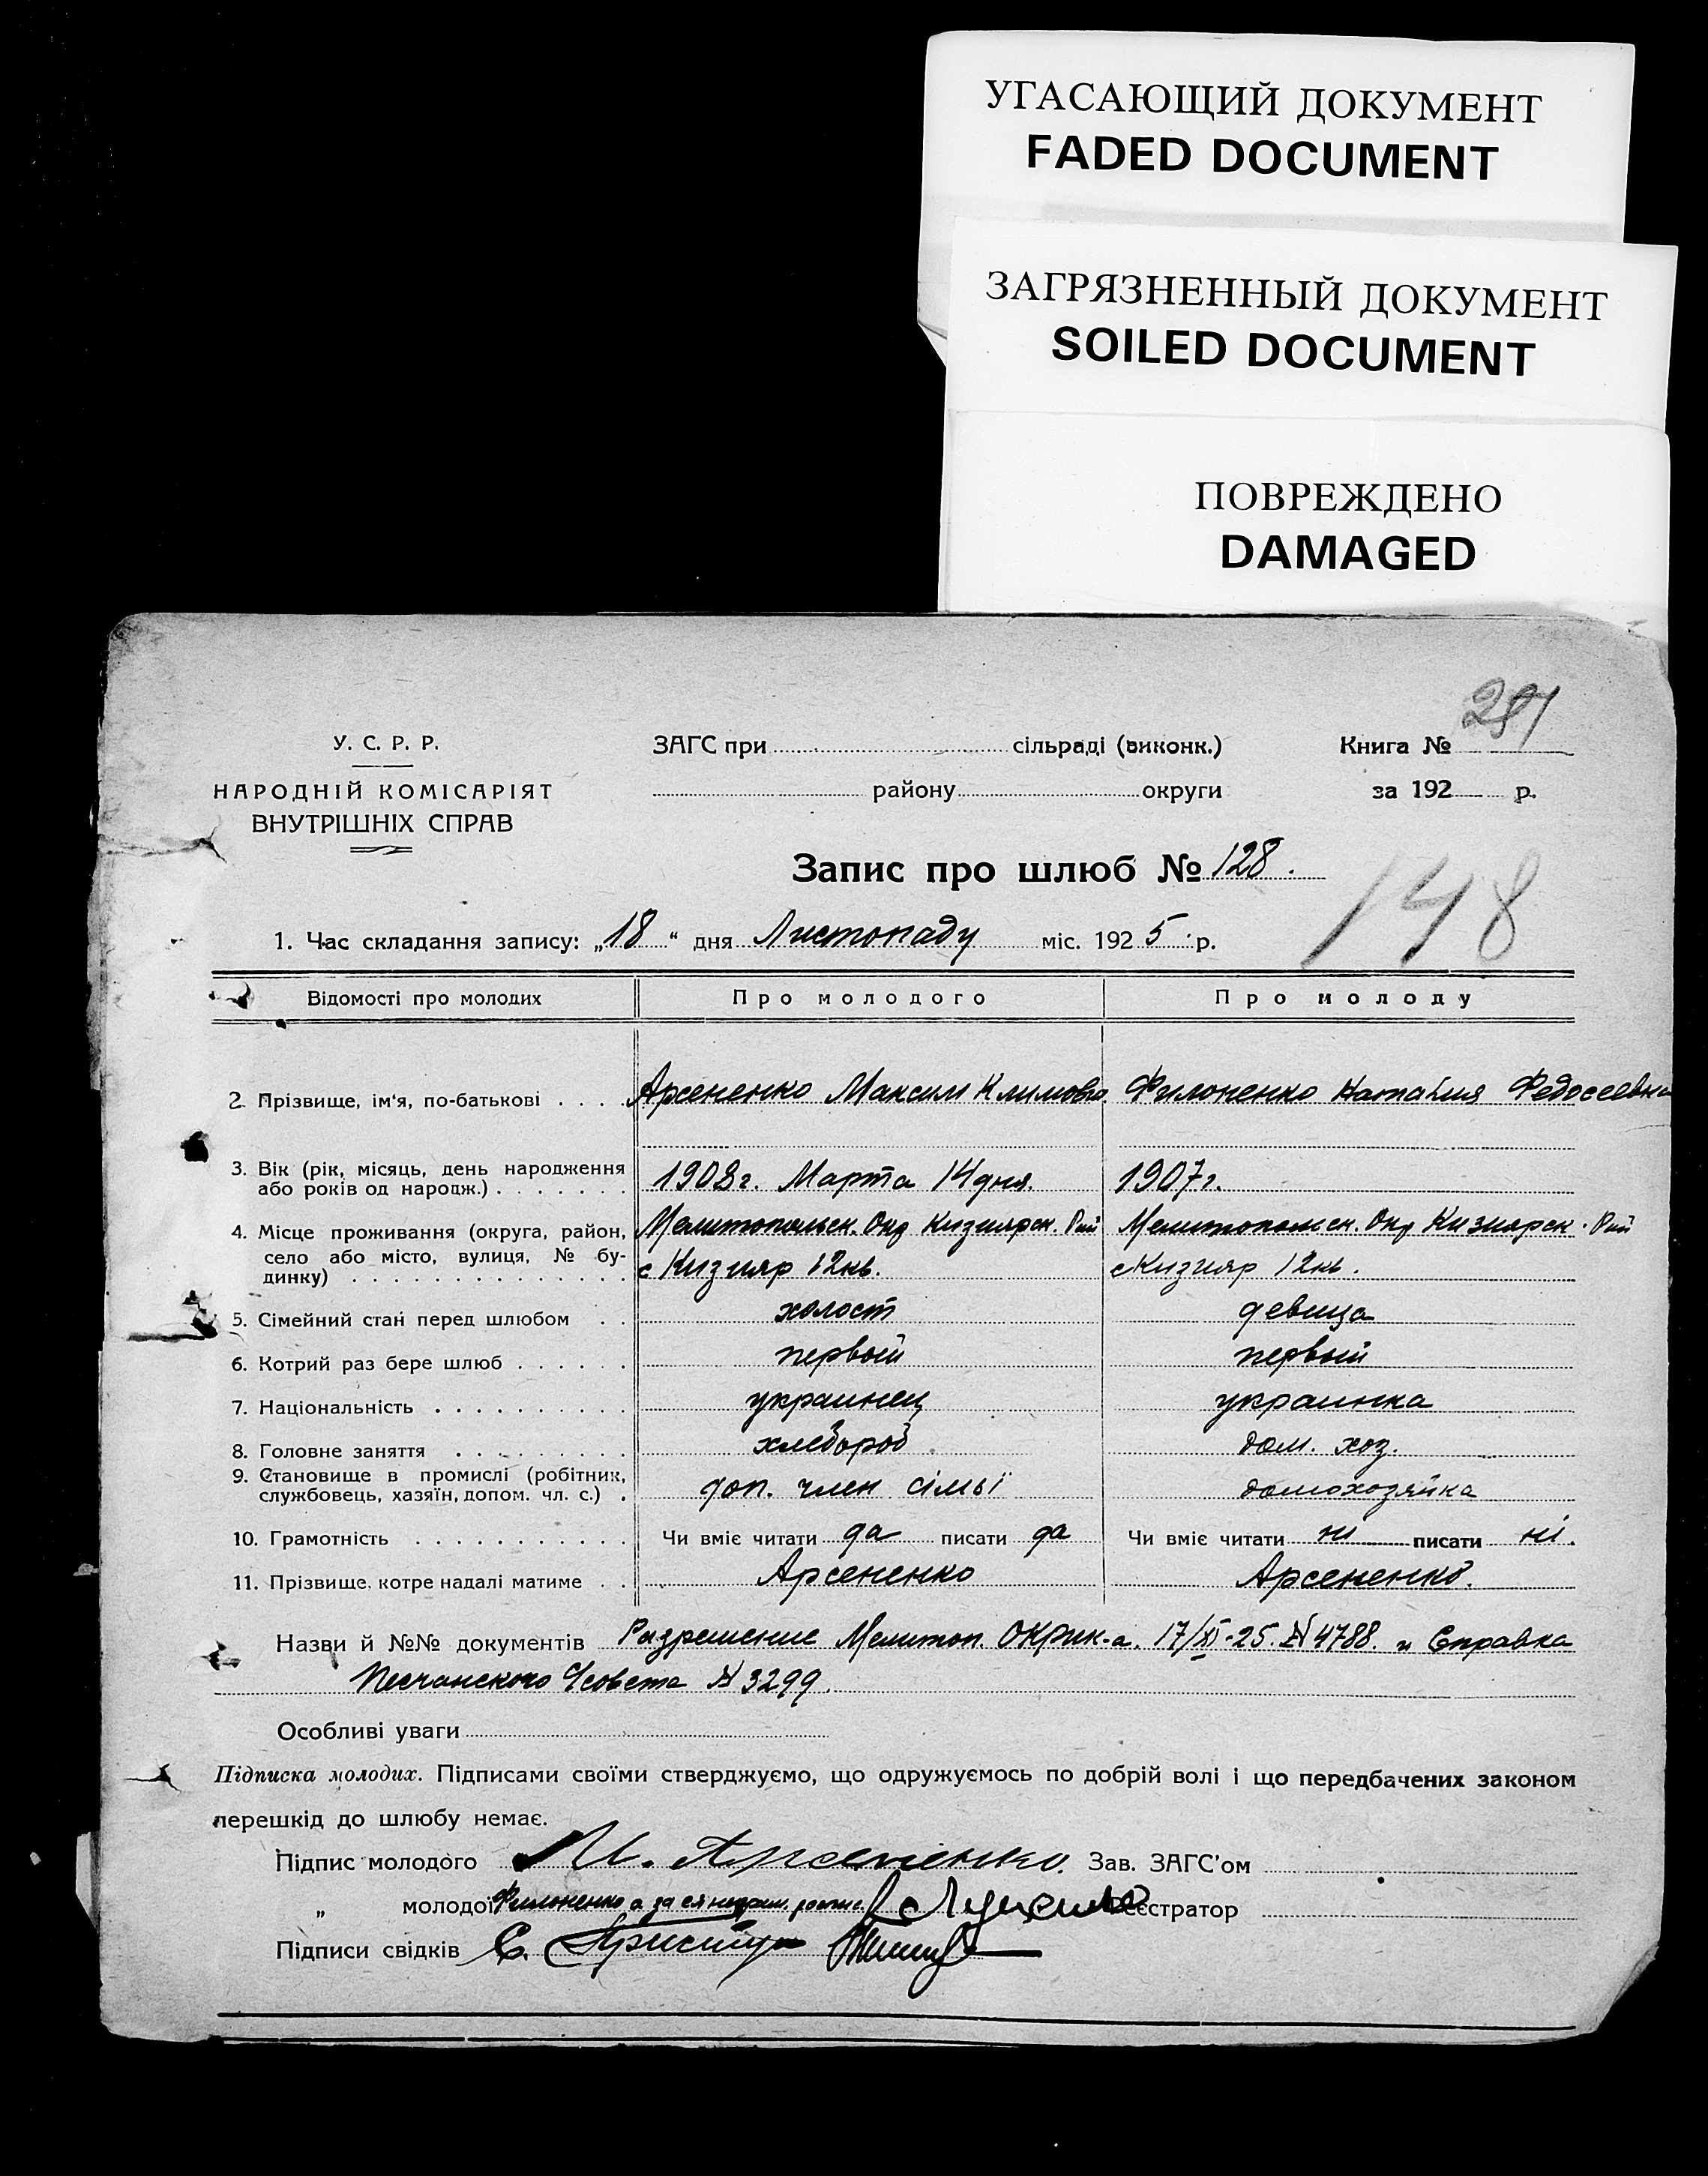 УГАСАЮЩИЙ ДОКУМЕНТ
FADED DOCUMENT
ЗАГРЯЗНЕННЫЙ ДОКУМЕНТ
SOILED DOCUMENT
ПОВРЕЖДЕНО
DAMAGED
У. С. Р. Р.
НАРОДНІЙ КОМІСАРІЯТ
ВНУТРІШНІХ СПРАВ
ЗАГС при сільраді (виконк.)
району округи
Книга №
за 192 р.
Запис про шлюб № 128.
148
1. Час складання запису: „18“ дня Листопаду міс. 1925 р.
Відомості про молодих Про молодого Про молоду
2. Прізвище, ім'я, по-батькові . . . . Арсененко Максим Филоненко Наталия Федосеевна
3. Вік (рік, місяць, день народження
або років од народж.) . . . . . . . 1908 г. Марта 14 дня. 1907 г.
4. Місце проживання (округа, район, Мелитопольск. Окр Кизиярск. Рай Мелитопольск. Окр Кизиярск. Рай
село або місто, вулиця, № бу-
динку) . . . . . . . . . . . . . . с Кизияр 12кв. с Кизияр 12кв.
5. Сімейний стан перед шлюбом . . холост девица
6. Котрий раз бере шлюб . . . . . . первый первый
7. Національність . . . . . . . . . . украинец украинка
8. Головне заняття . . . . . . . . . хлебороб дом. хоз.
9. Становище в промислі (робітник,
службовець, хазяїн, допом. чл. с.) . доп. член сімьї домохозяйка
10. Грамотність . . . . . . . . . . . Чи вміє читати да писати да Чи вміє читати ні писати ні.
11. Прізвище, котре надалі матиме . . Арсененко Арсененко.
Назви й №№ документів Разрешение Мелитоп. ОКРИК-а. 17/XI-25. № 4788. и Справка
Песчанского № 3299.
Особливі уваги
Підписка молодих. Підписами своїми стверджуємо, що одружуємось по добрій волі і що передбачених законом
перешкід до шлюбу немає.
Підпис молодого М. Арсененко. Зав. ЗАГС'ом
„ молодої Филоненко а за ея неграм. Реєстратор
Підписи свідків